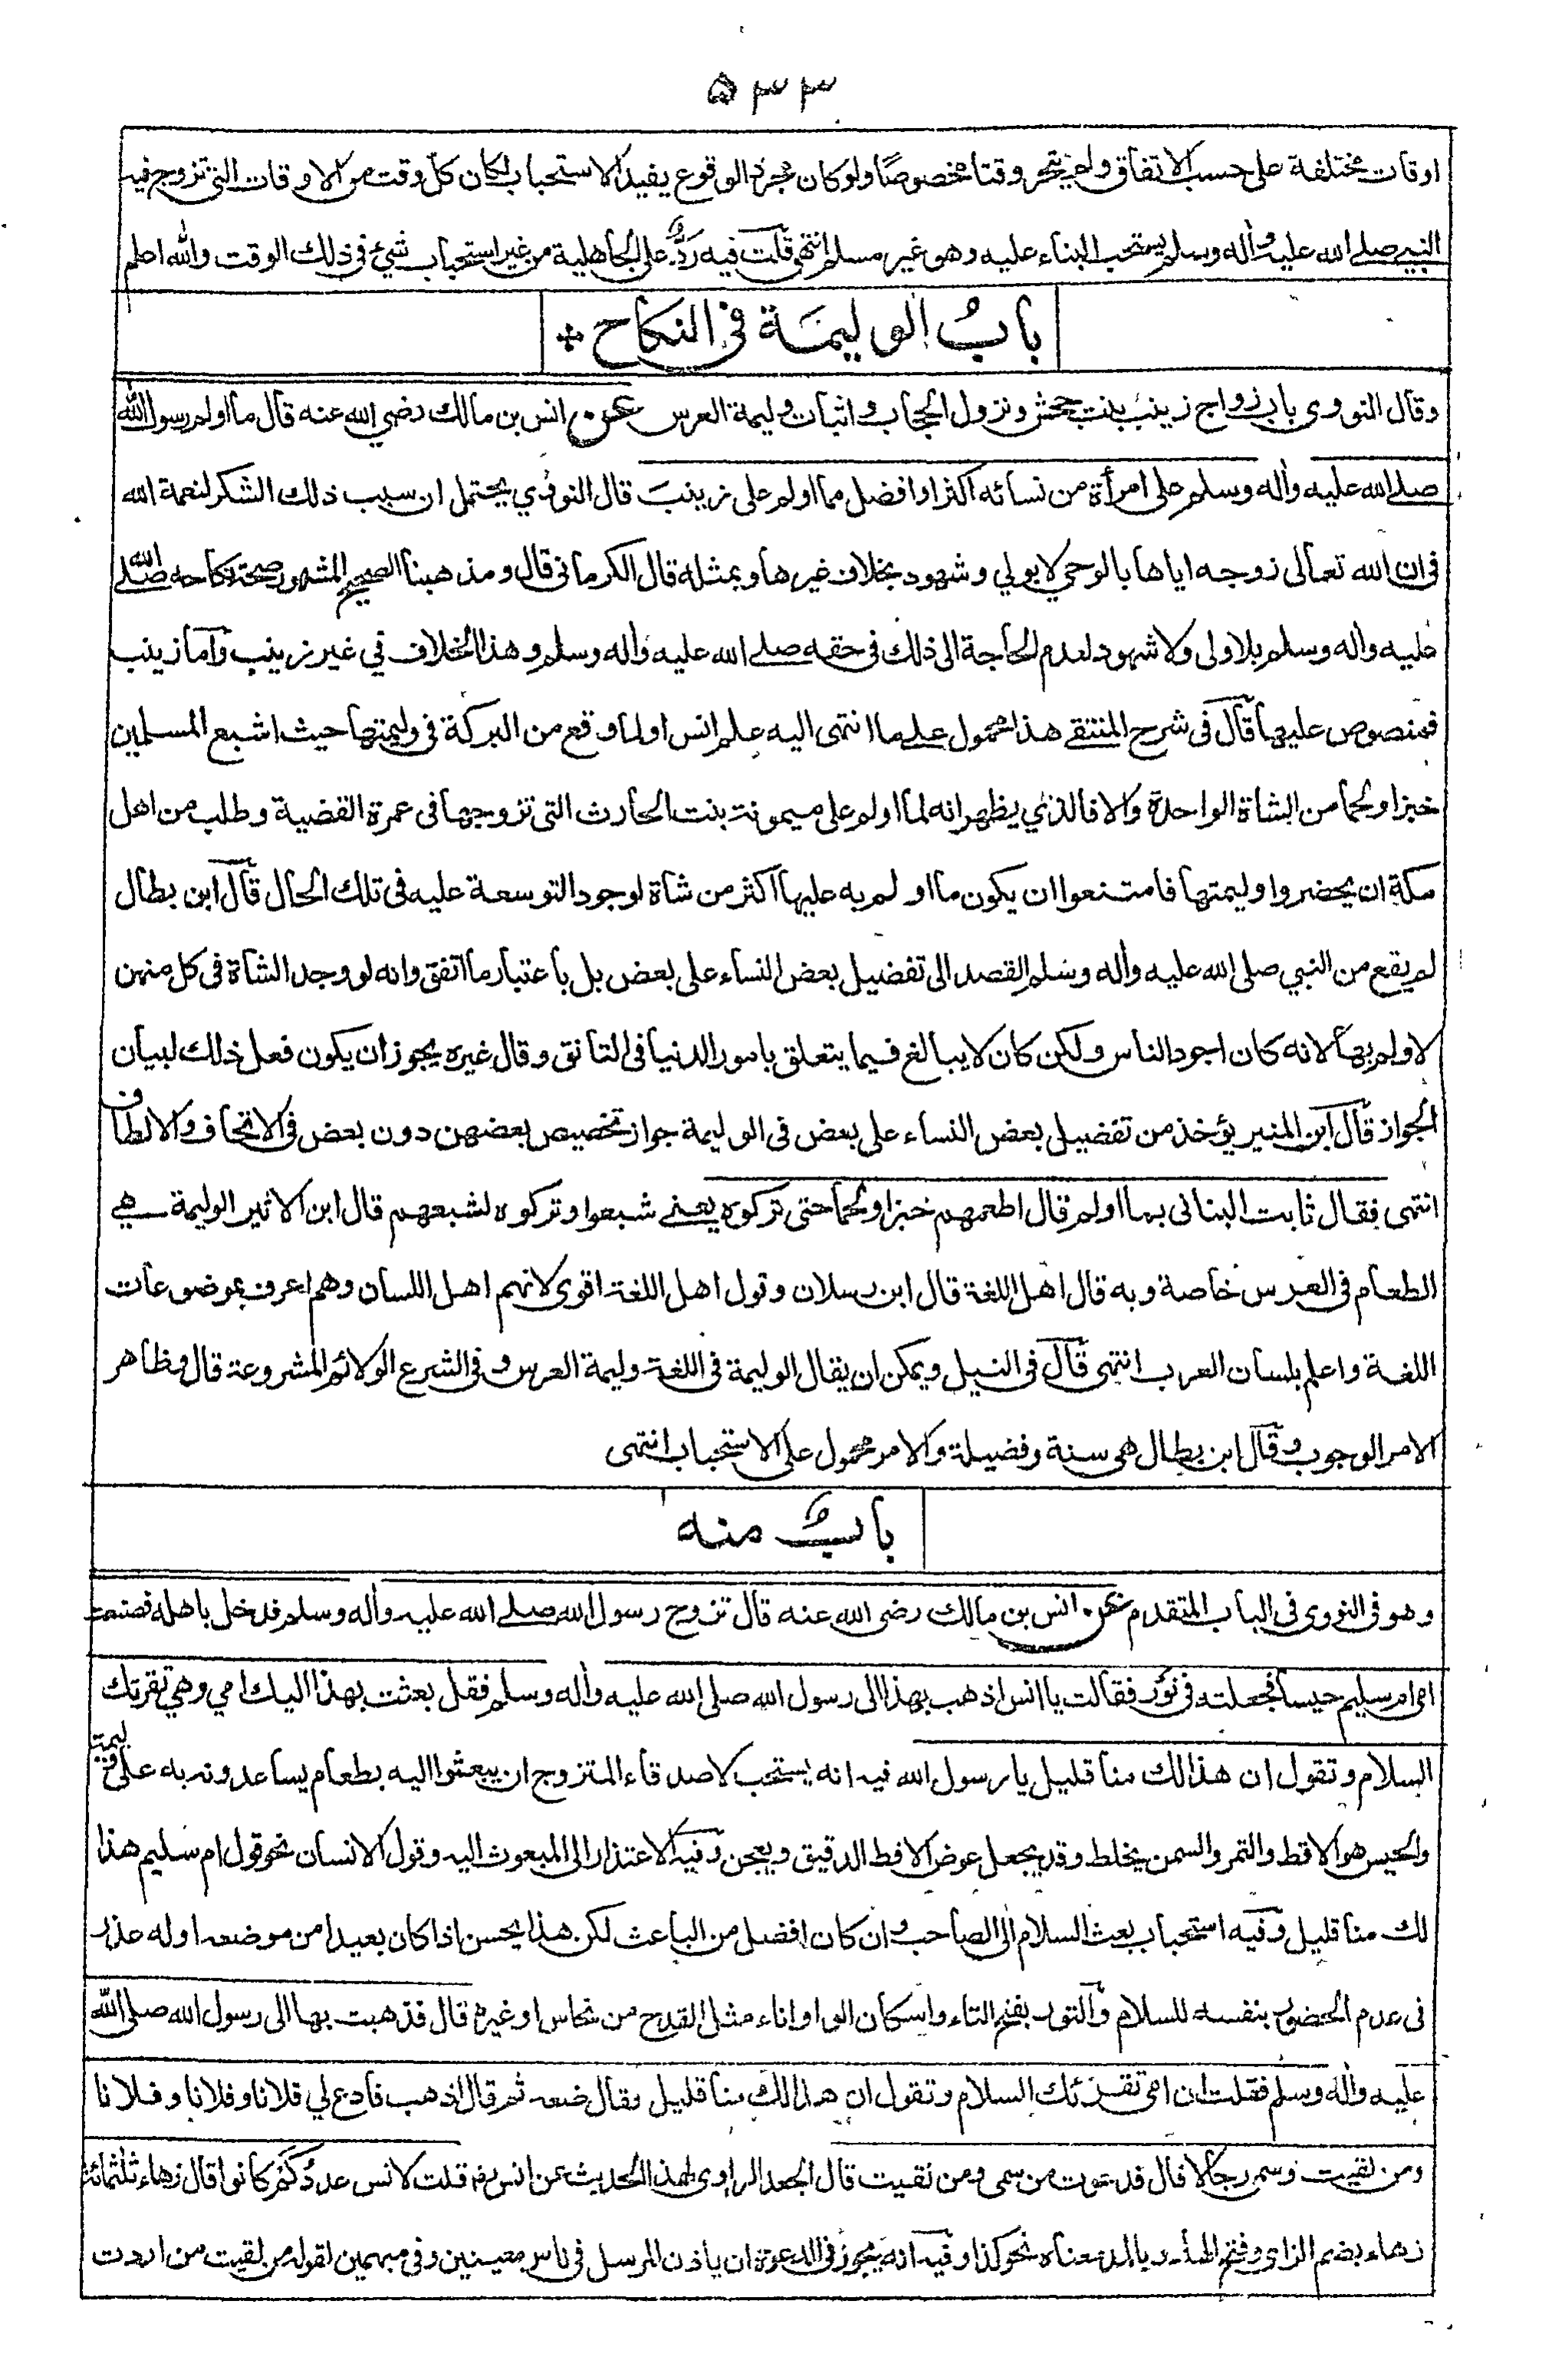 ۵۳۳
اوقات مختلفة على حسب الاتفاق ولم يتحر وقتا مخصوصًا ولو كان مجرد الوقوع يفيد الاستحباب لكان كلّ وقت من الاوقات التي تزوج فيه
النبي صلى الله عليه وأله وسلم يستحب البناء عليه وهو غير مسلم انتهى قلت فيه رَدٌّ على الجاهلية من غير استحباب شيئ في ذلك الوقت والله اعلم
بابُ الوليمَة في النكاح
وقال النووي باب زواج زينب بنت جحش ونزول الحجاب واثبات وليمة العرس عن انس بن مالك رضي الله عنه قال ما اولم رسول الله
صلى الله عليه وأله وسلم على امرأة من نسائه اكثر او افضل مما اولم على زينب قال النووي يحتمل ان سبب ذلك الشكر لنعمة الله
في ان الله تعالى زوجه اياها بالوحي لا بولي وشهود بخلاف غيرها وبمثله قال الكرماني قال ومذهبنا الصحيح المشهور صحة نكاحه صلى الله
عليه وأله وسلم بلا ولى ولا شهود لعدم الحاجة الى ذلك في حقه صلى الله عليه وأله وسلم وهذا الخلاف في غير زينب وأما زينب
فمنصوص عليها قال في شرح المنتقى هذا محمول على ما انتهى اليه علم انس او لما وقع من البركة في وليمتها حيث اشبع المسلمين
خبزا ولحما من الشاة الواحدة والا فالذي يظهر انه لما اولم على ميمونة بنت الحارث التي تزوجها في عمرة القضية وطلب من اهل
مكة ان يحضروا وليمتها فامتنعوا ان يكون ما اولم به عليها اكثر من شاة لوجود التوسعة عليه في تلك الحال قال ابن بطال
لم يقع من النبي صلى الله عليه وأله وسلم القصد الى تفضيل بعض النساء على بعض بل باعتبار ما اتفق وانه لو وجد الشاة في كل منهن
لاولم بها لانه كان اجود الناس ولكن كان لا يبالغ فيما يتعلق بامور الدنيا في التانق وقال غيره يجوز ان يكون فعل ذلك لبيان
الجواز قال ابن المنير يؤخذ من تفضيل بعض النساء على بعض في الوليمة جواز تخصيص بعضهن دون بعض في الاتحاف والالطاف
انتهى فقال ثابت البناني بما اولم قال اطعمهم خبزا ولحما حتى تركوه يعني شبعوا وتركوه لشبعهم قال ابن الاثير الوليمة هي
الطعام في العرس خاصة وبه قال اهل اللغة قال ابن رسلان وقول اهل اللغة اقوى لانهم اهل اللسان وهم اعرف بموضوعات
اللغة واعلم بلسان العرب انتهى قال في النيل ويمكن ان يقال الوليمة في اللغة وليمة العرس وفي الشرع الولائم المشروعة قال وظاهر
الامر الوجوب وقال ابن بطال هي سنة وفضيلة والامر محمول على الاستحباب انتهى
بابٌ منه
وهو في النووي في الباب المتقدم عن انس بن مالك رضي الله عنه قال تزوج رسول الله صلى الله عليه وأله وسلم فدخل باهله فصنعت
امي ام سليم حيسا فجعلته في تور فقالت يا انس اذهب بهذا الى رسول الله صلى الله عليه وأله وسلم فقل بعثت بهذا اليك امي وهي تقرئك
السلام وتقول ان هذا لك منا قليل يا رسول الله فيه انه يستحب لاصدقاء المتزوج ان يبعثوا اليه بطعام يساعدونه به على وليمته
والحيس هو الاقط والتمر والسمن يخلط وقد يجعل عوض الاقط الدقيق ويعجن وفيه الاعتذار الى المبعوث اليه وقول الانسان نحو قول ام سليم هذا
لك منا قليل وفيه استحباب بعث السلام الى الصاحب وان كان افضل من الباعث لكن هذا يحسن اذا كان بعيدا من موضعه او له عذر
في عدم الحضور بنفسه للسلام والتور بفتح التاء واسكان الواو اناء مثل القدح من نحاس او غيره قال فذهبت بها الى رسول الله صلى الله
عليه وأله وسلم فقلت ان امي تقرئك السلام وتقول ان هذا لك منا قليل فقال ضعه ثم قال اذهب فادع لي فلانا وفلانا وفلانا
ومن لقيت وسمى رجالا قال فدعوت من سمى ومن لقيت قال الجعد الراوي لهذا الحديث عن انس رض قلت لانس عددُ كَمْ كانوا قال زهاء ثلثمائة
زهاء بضم الزاي وفتح الهاء وبالمد معناه نحو كذا وفيه انه يجوز في الدعوة ان ياذن المرسل في ناس معينين وفي مبهمين لقوله من لقيت من اردت